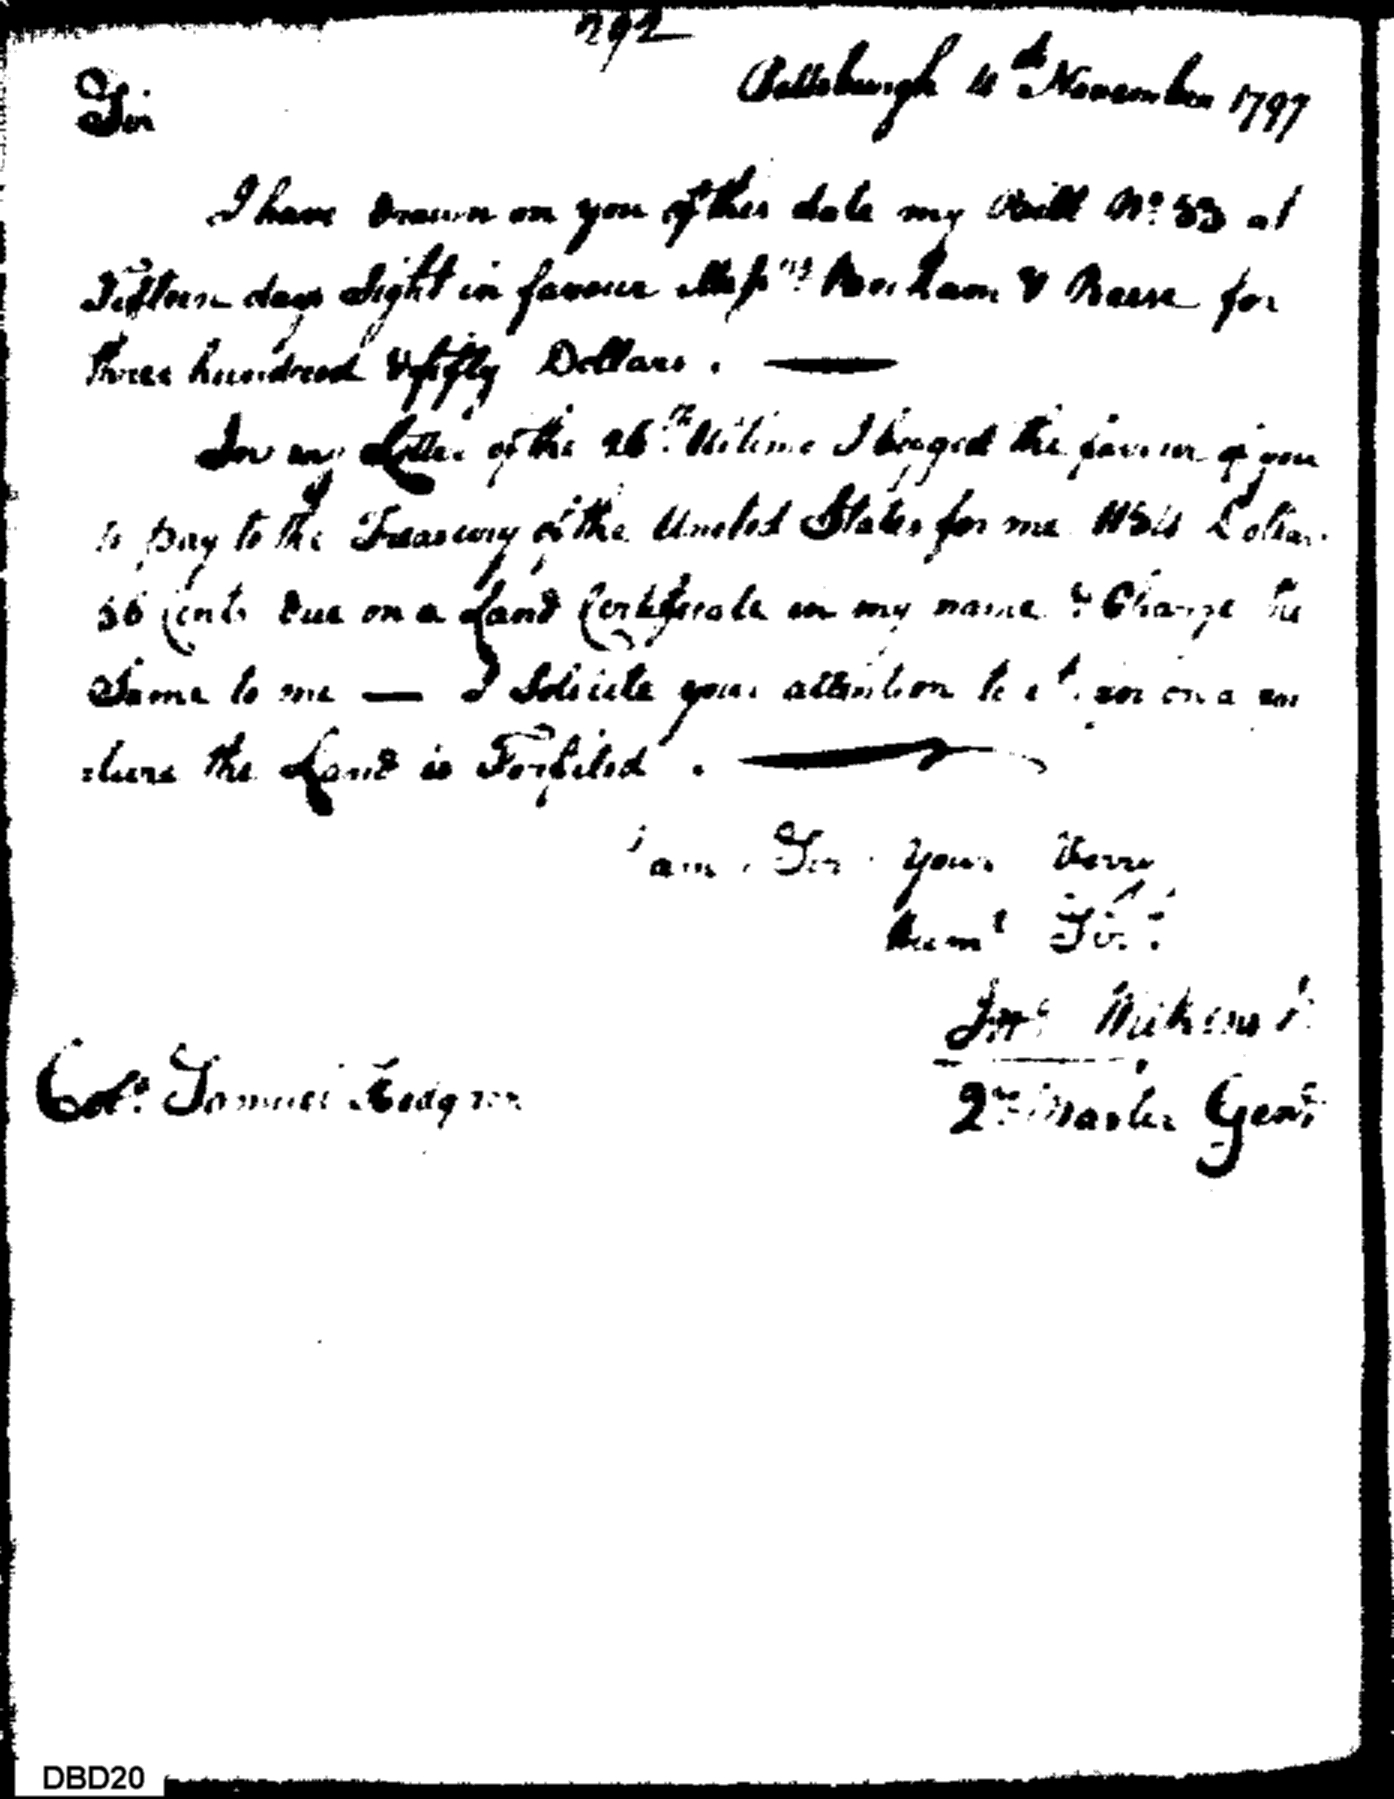 292
Pittsburgh 4th November 1797
Sir
I have Drawn on you of this date my Bill No. 53 at
Fifteen days Sight in favour Messrs & Reese for
three hundred & fifty Dollars.
In my Letter of the 26th Ultimo I begged the favour of you
to pay to the Treasury of the United States for me Dollars
56 Cents Due on a Land Certificate in my name & Charge the
Same to me — I Solicite your attention to it
the Land is Forfited.
I am Sir Your Verry
Humt
Jno Wilkins Jr.
Colo. Samuel Hodgdon
Qr. Master Genl.
DBD20